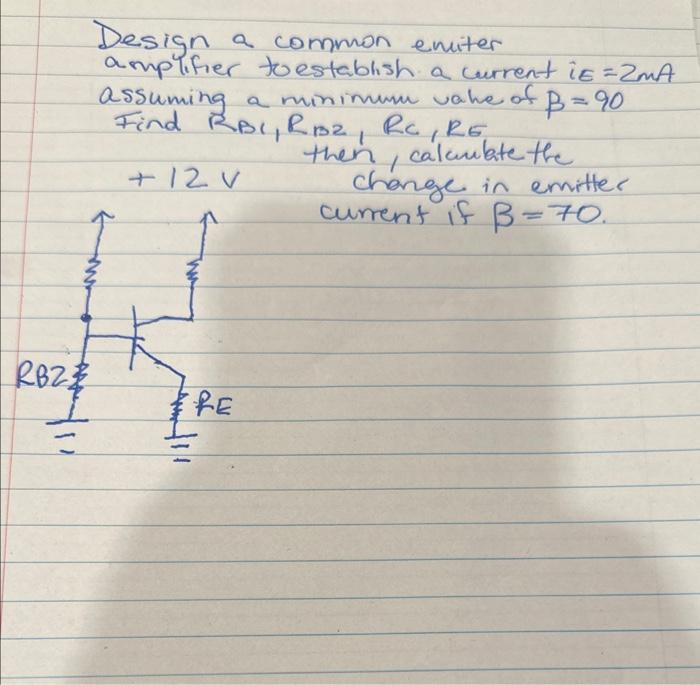 Design a common emiter
amplifier to establish a current iE = 2mA
assuming a minimum value of β = 90
Find RB1, RB2, RC, RE
then, calculate the
change in emitter
current if β = 70.
+ 12 V
RB2
RE